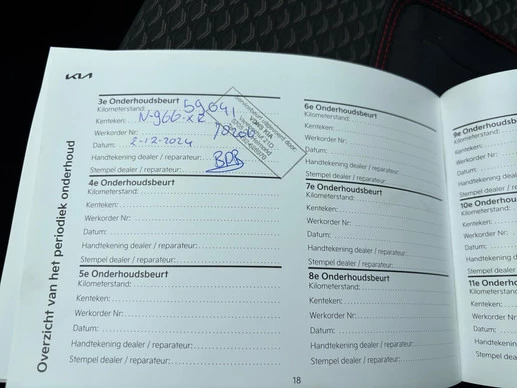 KIA
Overzicht van het periodiek onderhoud
3e Onderhoudsbeurt
Kilometerstand: 59041
Kenteken: N-966-XR
Werkorder Nr:
Datum: 2-12-2024
Handtekening dealer / reparateur:
Stempel dealer / reparateur:
4e Onderhoudsbeurt
Kilometerstand:
Kenteken:
Werkorder Nr:
Datum:
Handtekening dealer / reparateur:
Stempel dealer / reparateur:
5e Onderhoudsbeurt
Kilometerstand:
Kenteken:
Werkorder Nr:
Datum:
Handtekening dealer / reparateur:
Stempel dealer / reparateur:
6e Onderhoudsbeurt
Kilometerstand:
Kenteken:
Werkorder Nr:
Datum:
Handtekening dealer / reparateur:
Stempel dealer / reparateur:
7e Onderhoudsbeurt
Kilometerstand:
Kenteken:
Werkorder Nr:
Datum:
Handtekening dealer / reparateur:
Stempel dealer / reparateur:
8e Onderhoudsbeurt
Kilometerstand:
Kenteken:
Werkorder Nr:
Datum:
Handtekening dealer / reparateur:
Stempel dealer / reparateur:
18
9e Onderhoudsb
Kilometerstand:
Kenteken:
Werkorder Nr:
Datum:
Handtekening deal
Stempel dealer / re
10e Onderhouds
Kilometerstand:
Kenteken:
Werkorder Nr:
Datum:
Handtekening d
Stempel dealer
11e Onder
Kilometerst
Kenteken:
Werkorde
Datum:
Handte
Stemp